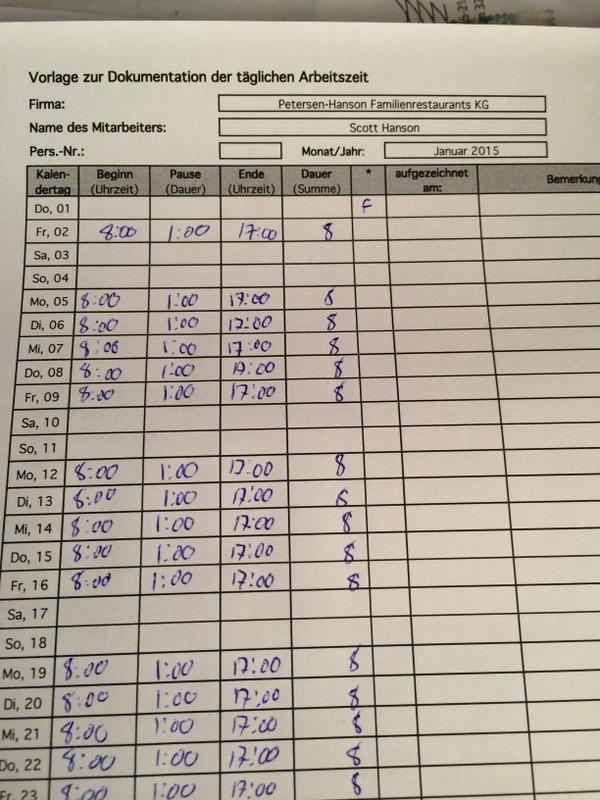 Vorlage zur Dokumentation der täglichen Arbeitszeit
Firma: Petersen-Hanson Familienrestaurants KG
Name des Mitarbeiters: Scott Hanson
Pers.-Nr.: Monat/Jahr: Januar 2015
Kalen- Beginn Pause Ende Dauer * aufgezeichnet Bemerkung
dertag (Uhrzeit) (Dauer) (Uhrzeit) (Summe) am:
Do, 01 F
Fr, 02 8:00 1:00 17:00 8
Sa, 03
So, 04
Mo, 05 8:00 1:00 17:00 8
Di, 06 8:00 1:00 17:00 8
Mi, 07 8:00 1:00 17:00 8
Do, 08 8:00 1:00 17:00 8
Fr, 09 8:00 1:00 17:00 8
Sa, 10
So, 11
Mo, 12 8:00 1:00 17:00 8
Di, 13 8:00 1:00 17:00 8
Mi, 14 8:00 1:00 17:00 8
Do, 15 8:00 1:00 17:00 8
Fr, 16 8:00 1:00 17:00 8
Sa, 17
So, 18
Mo, 19 8:00 1:00 17:00 8
Di, 20 8:00 1:00 17:00 8
Mi, 21 8:00 1:00 17:00 8
Do, 22 8:00 1:00 17:00 8
Fr, 23 8:00 1:00 17:00 8